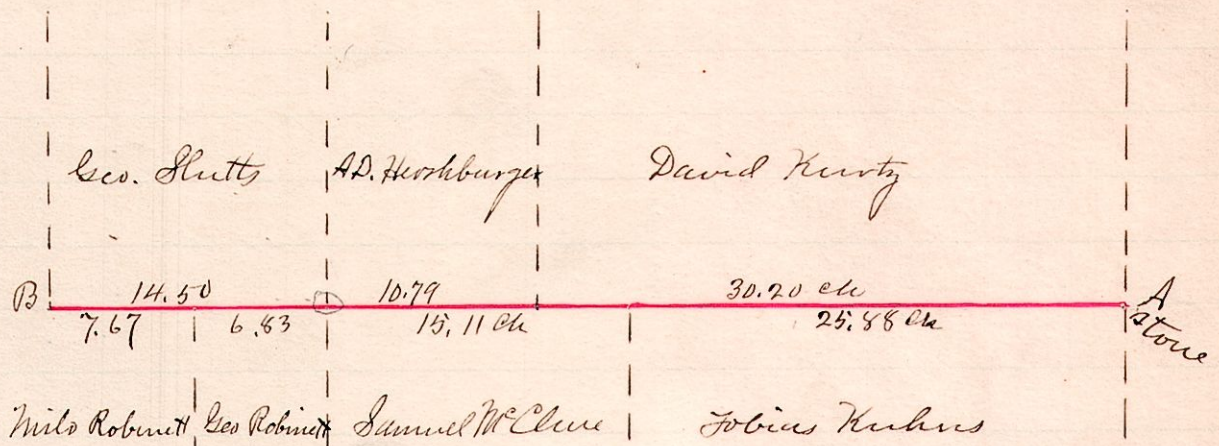 Geo. Shutts A.D. Hershburger David Kurtz
B 14.50 10.79 30.20 ch A
7.67 6.83 15.11 ch 25.88 ch stone
Milo Robinett Geo Robinett Samuel McClure Tobias Kuhns